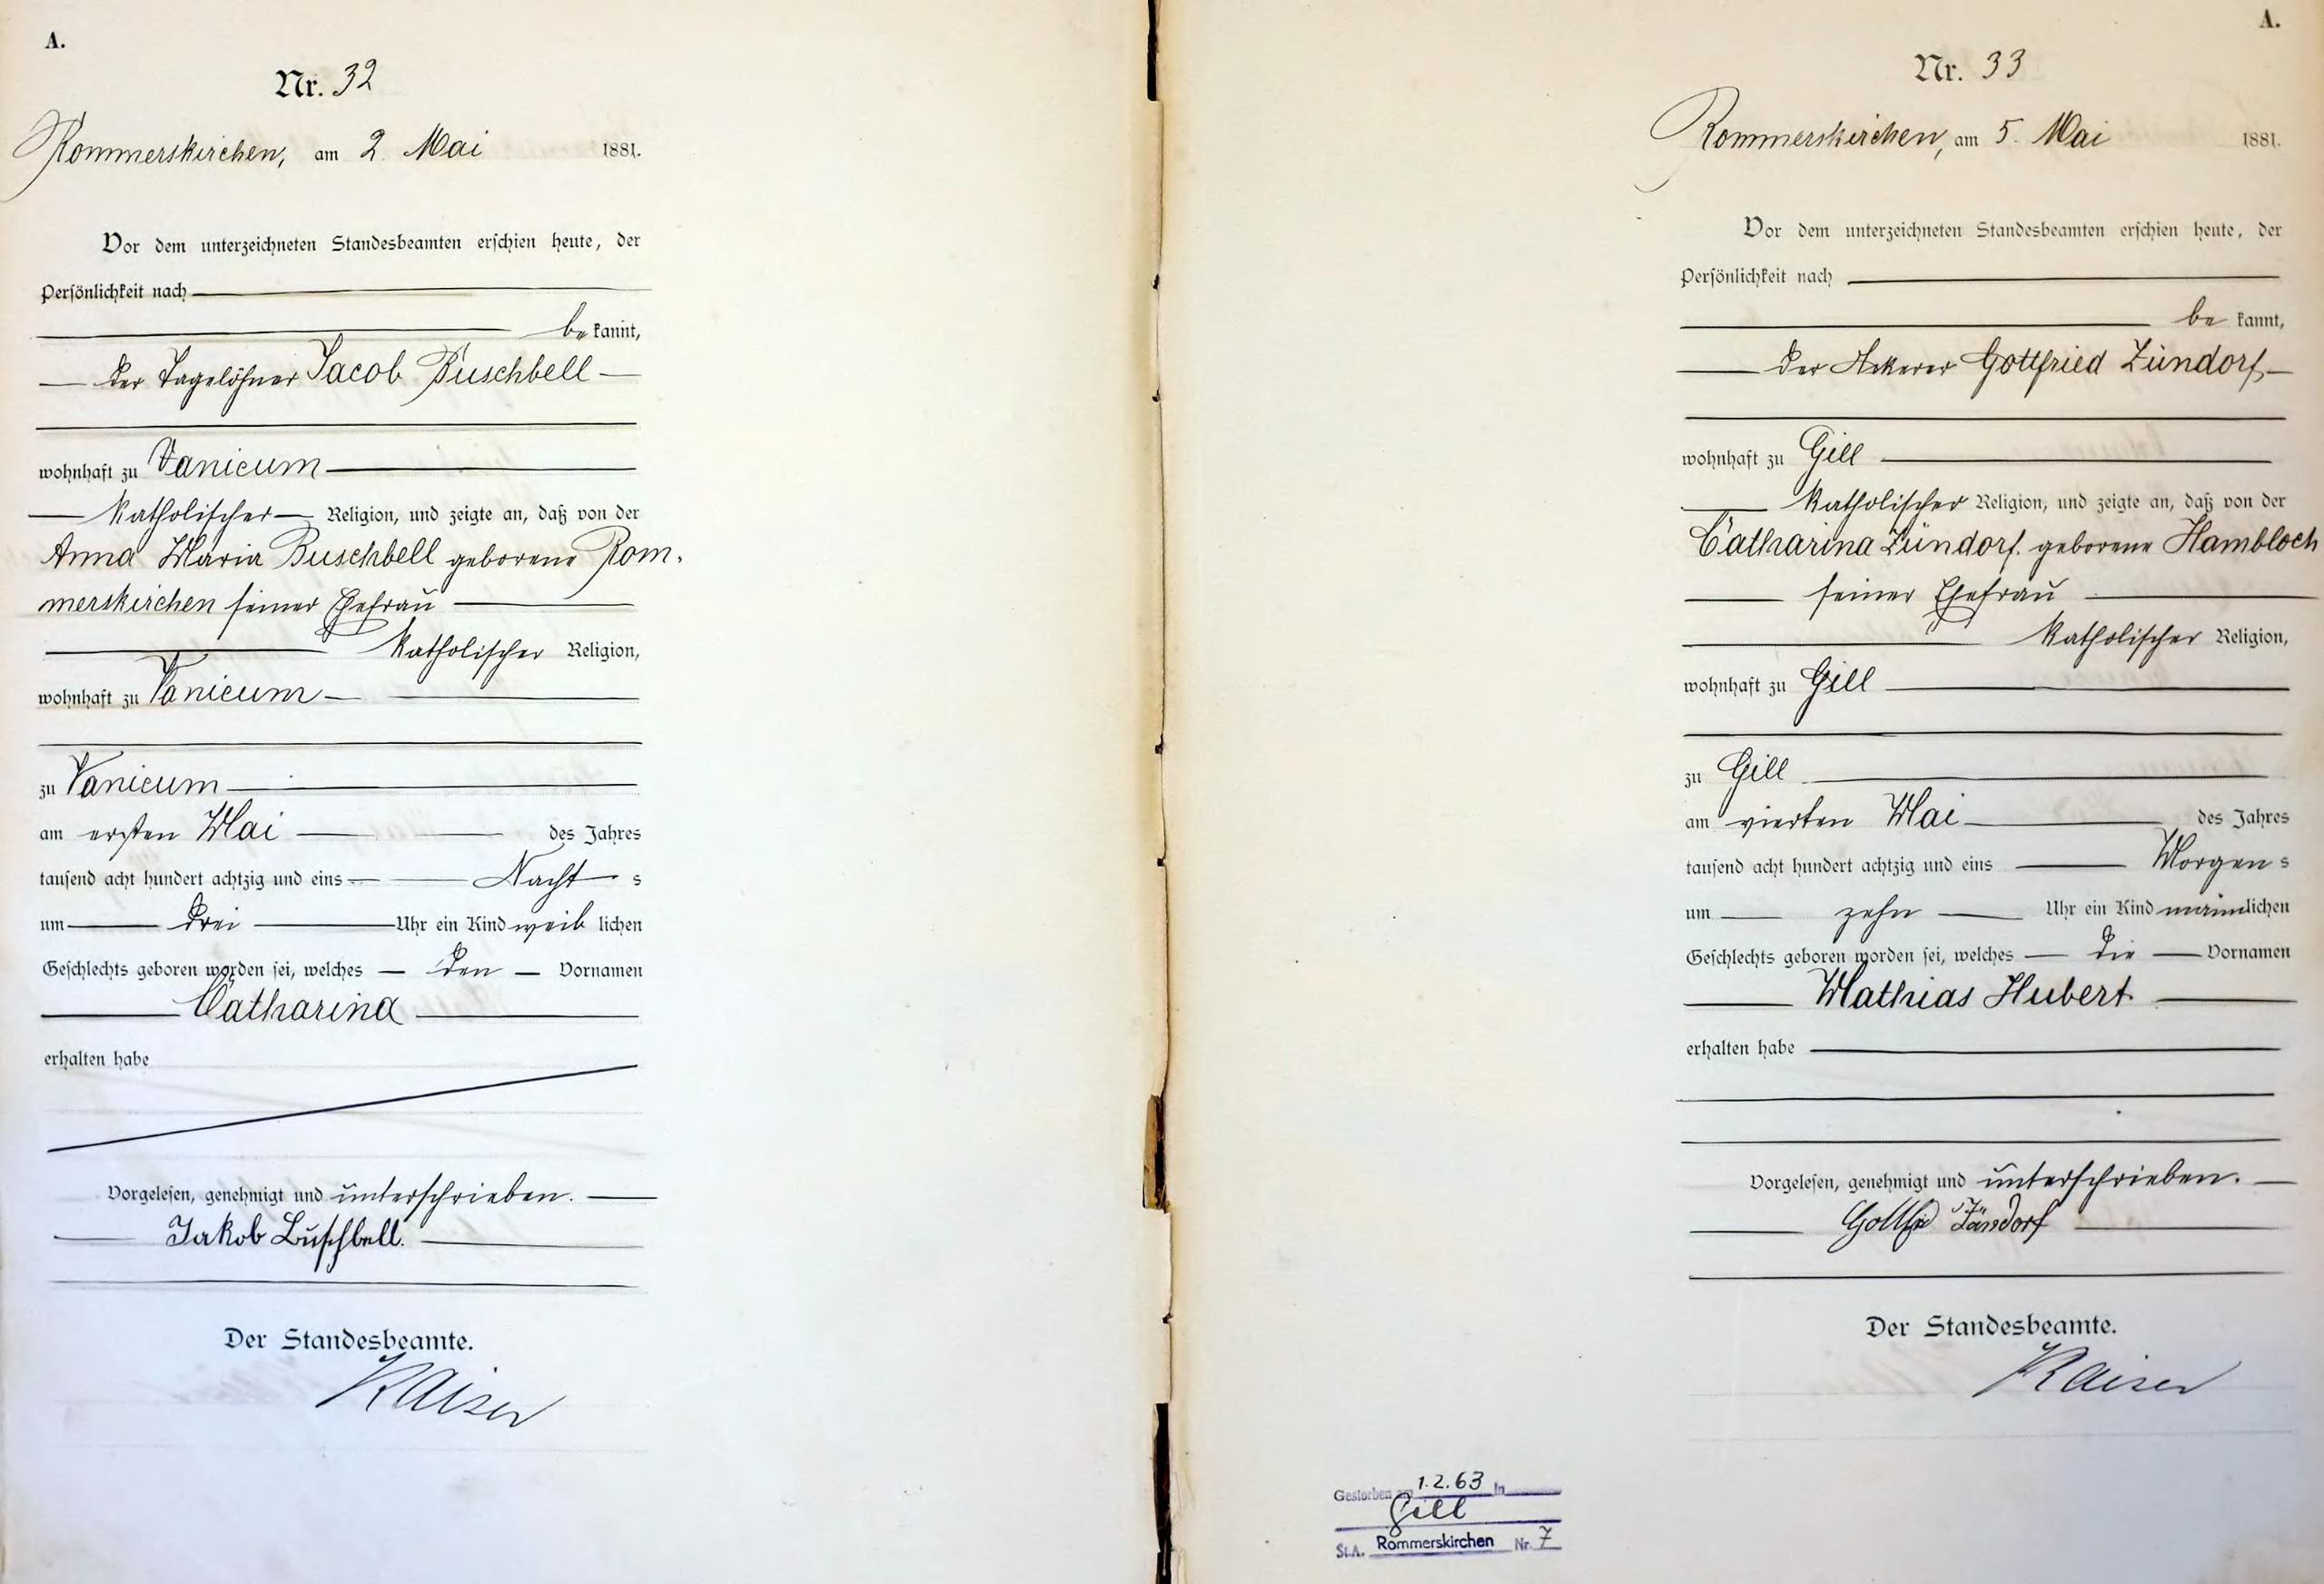 A.
Nr. 32
Rommerskirchen, am 2. Mai 1881.
Vor dem unterzeichneten Standesbeamten erschien heute, der
Persönlichkeit nach
be kannt,
der Tagelöhner Jacob Buschbell
wohnhaft zu Vanicum
katholischer Religion, und zeigte an, daß von der
Anna Maria Buschbell geborene Rom-
merskirchen seiner Ehefrau
katholischer Religion,
wohnhaft zu Vanicum
zu Vanicum
am ersten Mai des Jahres
tausend acht hundert achtzig und eins Nacht s
um drei Uhr ein Kind weib lichen
Geschlechts geboren worden sei, welches den Vornamen
Catharina
erhalten habe
Vorgelesen, genehmigt und unterschrieben.
Jakob Buschbell.
Der Standesbeamte.
Kaiser
A.
Nr. 33
Rommerskirchen, am 5. Mai 1881.
Vor dem unterzeichneten Standesbeamten erschien heute, der
Persönlichkeit nach
be kannt,
der Ackerer Gottfried Zündorf
wohnhaft zu Gill
katholischer Religion, und zeigte an, daß von der
Catharina Zündorf geborene Hambloch
seiner Ehefrau
katholischer Religion,
wohnhaft zu Gill
zu Gill
am vierten Mai des Jahres
tausend acht hundert achtzig und eins Morgen s
um zehn Uhr ein Kind männlichen
Geschlechts geboren worden sei, welches die Vornamen
Mathias Hubert
erhalten habe
Vorgelesen, genehmigt und unterschrieben.
Gottfr Zündorf
Der Standesbeamte.
Kaiser
Gestorben am 1.2.63 in
Gill
St.A. Rommerskirchen Nr. 7